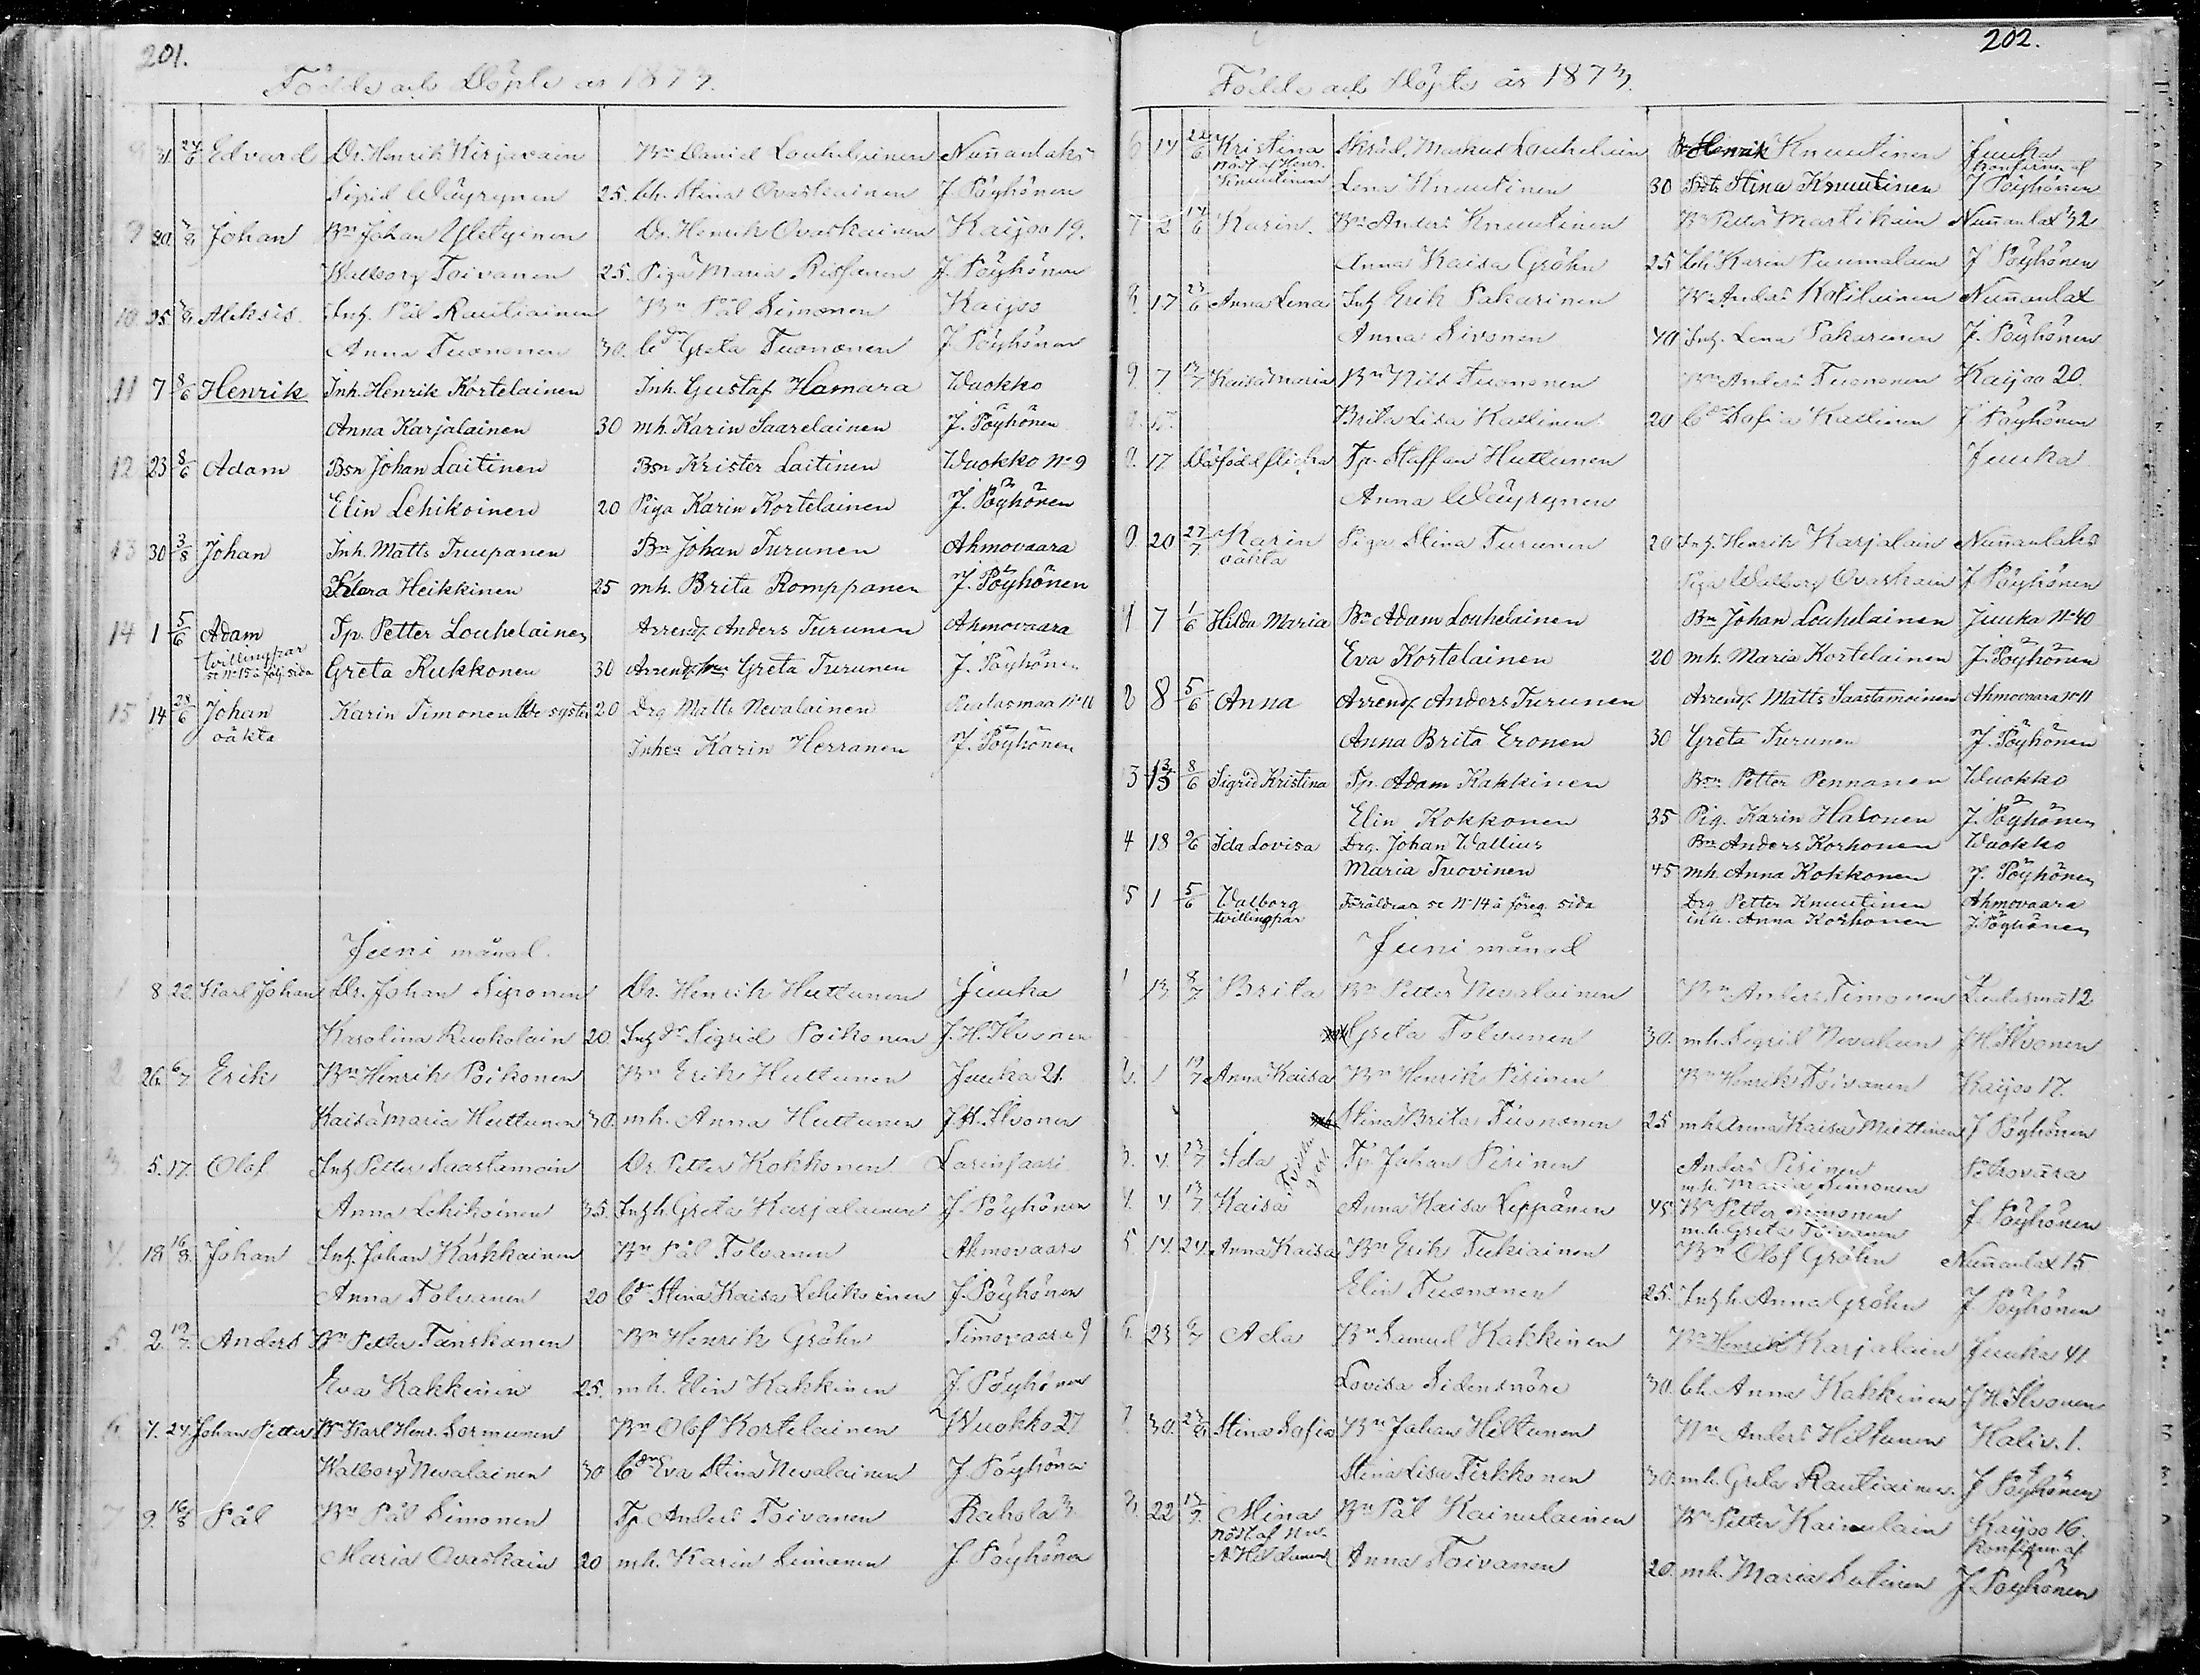 201.
Födde och Döpte år 1873.
31 27/6 Edvard Dr. Henrik Kirjavain Bn Daniel Louhelainen Nunnanlaks
Sigrid Wäyrynen 25. bh. Stina Ovaskainen J. Pöyhönen
9 20. Johan Bn Johan Yletyinen Dr. Henrik Ovaskainen Kaijoo 19.
Walborg Toivanen 25. Piga Maria Rissanen J. Pöyhönen
10 25 Aleksis. Inh. Pål Rautiainen Bn Pål Simonen Kaijoo
Anna Tuononen 30. Greta Tuononen J Pöyhönen
11 7 8/6 Henrik Inh. Henrik Kortelainen Inh. Gustaf Hamara Wuokko
Anna Karjalainen 30 mh. Karin Saarelainen J. Pöyhönen
12 23 8/6 Adam Bsn Johan Laitinen Bsn Krister Laitinen Wuokko No 9
Elin Lehikoinen 20 Piga Karin Kortelainen J. Pöyhönen
13 30 3/8 Johan Inh. Matts Tuupanen Bn Johan Turunen Ahmovaara
Klara Heikkinen 25 mh. Brita Romppanen J. Pöyhönen
14 1 5/6 Adam Tp. Petter Louhelainen Arrend. Anders Turunen Ahmovaara
tvillingpar se No 15 å följ. sida Greta Kukkonen 30 Arrend. hu Greta Turunen J. Pöyhönen
15 14 28/6 Johan Karin Timonen Bde syster 20 Drg Matts Nevalainen
oäkta Inhes Karin Herranen J. Pöyhönen
Juni månad.
1 8 22. Karl Johan Dr. Johan Sigronen Dr. Henrik Huttunen Juuka
Karolina Ruokolain 20. Inh Sigrid Poikonen J. H. Ilvonen
2 26. 6/7 Erik Bn Henrik Poikonen Bn Erik Huttunen Juuka 21.
Kaisa Maria Huttunen 30. mh. Anna Huttunen J. H. Ilvonen
3. 5. 17. Olof Inh Petter Saastamoin Dr. Petter Kokkonen Larinsaari
Anna Lehikoinen 35. Inh. Greta Karjalainen J Pöyhönen
4. 18 16/8. Johan Inh. Johan Kärkkainen Bn Pål Tolvanen Ahmovaara
Anna Tolvanen 20 Stina Kaisa Lehikoinen J. Pöyhönen
5. 2. 19/7. Anders Bn Petter Tanskanen Bn Henrik Gröhn Timovaara 9
Eva Kakkinen 25. mh. Elin Kakkinen J. Pöyhönen
6 7. 24. Johan Petter Bn Karl Henr. Sormunen Bn Olof Kortelainen Wuokko 27
Walborg Nevalainen 30 Eva Stina Nevalainen J Pöyhönen
7 9. 16/8 Pål Bn Pål Simonen Tp Anders Toivanen Rahola 3
Maria Ovaskain 20 mh. Karin Simonen J Pöyhönen
202.
Födde och Döpte år 1873.
6 14 22/6 Kristina Skräd. Markus Louhelain Henrik Knuutinen Juuka
Knuutinen Lena Knuutinen 30 Stina Knuutinen J Pöyhönen
7 2 14/6 Karin. Bn Anders Knuutinen Bn Petter Martikain Nunnanlax 32
Anna Kaisa Gröhn 25 bh Karin Puumalain J Pöyhönen
8. 17 23/6 Anna Lena Inh Erik Pakarinen Bn Anders Kotilainen Nunnanlax
Anna Sivonen 40 Inh. Lena Pakarinen J. Pöyhönen
9. 7 Kaisa Maria Bn Nils Tuononen Bn Anders Tuononen Kaijoo 20.
Brita Lisa Kallinen 20 Sofia Kallinen J Pöyhönen
17 Döfödd flicka Tp. Staffan Huttunen Juuka
Anna Wäyrynen
20 27/7 Karin Piga Stina Turunen 20 Inh. Henrik Karjalain Nunnanlaks
oäkta Piga Walborg Ovaskain J Pöyhönen
1 7 1/6 Hilda Maria Bn Adam Louhelainen Bn Johan Louhelainen Juuka No 40
Eva Kortelainen 20 mh. Maria Kortelainen J. Pöyhönen
2 8 5/6 Anna Arrend. Anders Turunen Arrend. Matts Saastamoinen Ahmovaara No 11
Anna Brita Eronen 30 Greta Turunen J. Pöyhönen
3 13 8/6 Sigrid Kristina Tp. Adam Kakkinen Bsn Petter Pennanen Wuokko
Elin Kokkonen 35 Pig. Karin Halonen J. Pöyhönen
4 18 26 Ida Lovisa Drg. Johan Wallius Bn Anders Korhonen Wuokko
Maria Tuovinen 45 mh. Anna Kokkonen J. Pöyhönen
5 1 5/6 Walborg Föräldrar se No 14 å föreg. sida Drg Petter Knuutinen Ahmovaara
tvillingpar inh. Anna Korhonen J. Pöyhönen
Juni månad
1 13 8/7 Brita Bn Petter Nevalainen Bn Anders Timonen 12
Greta Tolvanen 30. mh. Sigrid Nevalain J H. Ilvonen
2. 1 19/7 Anna Kaisa Bn Henrik Pisinen Bn Henrik Toivanen Kaijoo 17.
Stina Brita Tuononen 25 mh Anna Kaisa Miettinen J Pöyhönen
3. 4. 13/7 Ida Tp Johan Pirinen Anders Pirinen Petrovaara
m.h. Maria Simonen
4. 4 13/7 Kaisa Anna Kaisa Leppänen 45 Bn Petter Simonen J. Pöyhönen
m.h. Greta Toivanen
5. 14. 24. Anna Kaisa Bn Erik Tukiainen Bn Olof Gröhn Nunnanlax 15
Elin Tuononen 25. Inh. Anna Gröhn J Pöyhönen
6. 23 6/7 Ada Bn Samuel Kakkinen Bn Henrik Karjalain Juuka 41.
Lovisa Sidensnöre 30. bh. Anna Kakkinen J H. Ilvonen
7 30. Stina Sofia Bn Johan Hiltunen Bn Anders Hiltunen Haliv. 1.
Stina Lisa Tirkkonen 30. mh. Greta Rautiainen. J Pöyhönen
8. 22 Mina Bn Pål Kainulainen Bn Petter Kainulain Kaijoo 16.
Anna Toivanen 20. mh. Maria Sulinen J. Pöyhönen